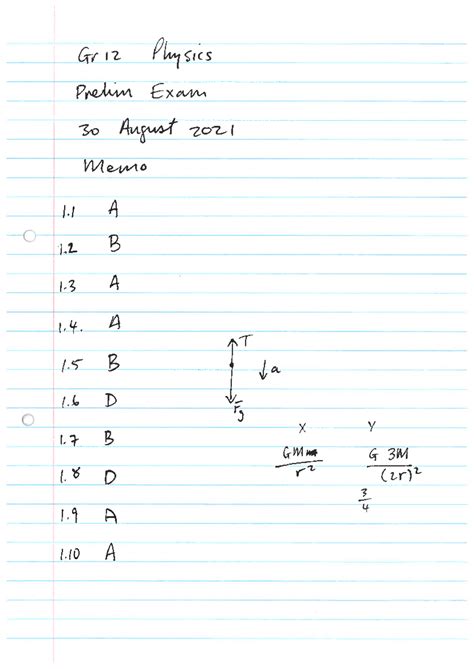 Gr 12 Physics
Prelim Exam
30 August 2021
Memo
1.1 A
1.2 B
1.3 A
1.4. A
1.5 B
1.6 D
1.7 B
1.8 D
1.9 A
1.10 A
T
a
Fg
X Y
GM G 3M
r² (2r)²
3
4